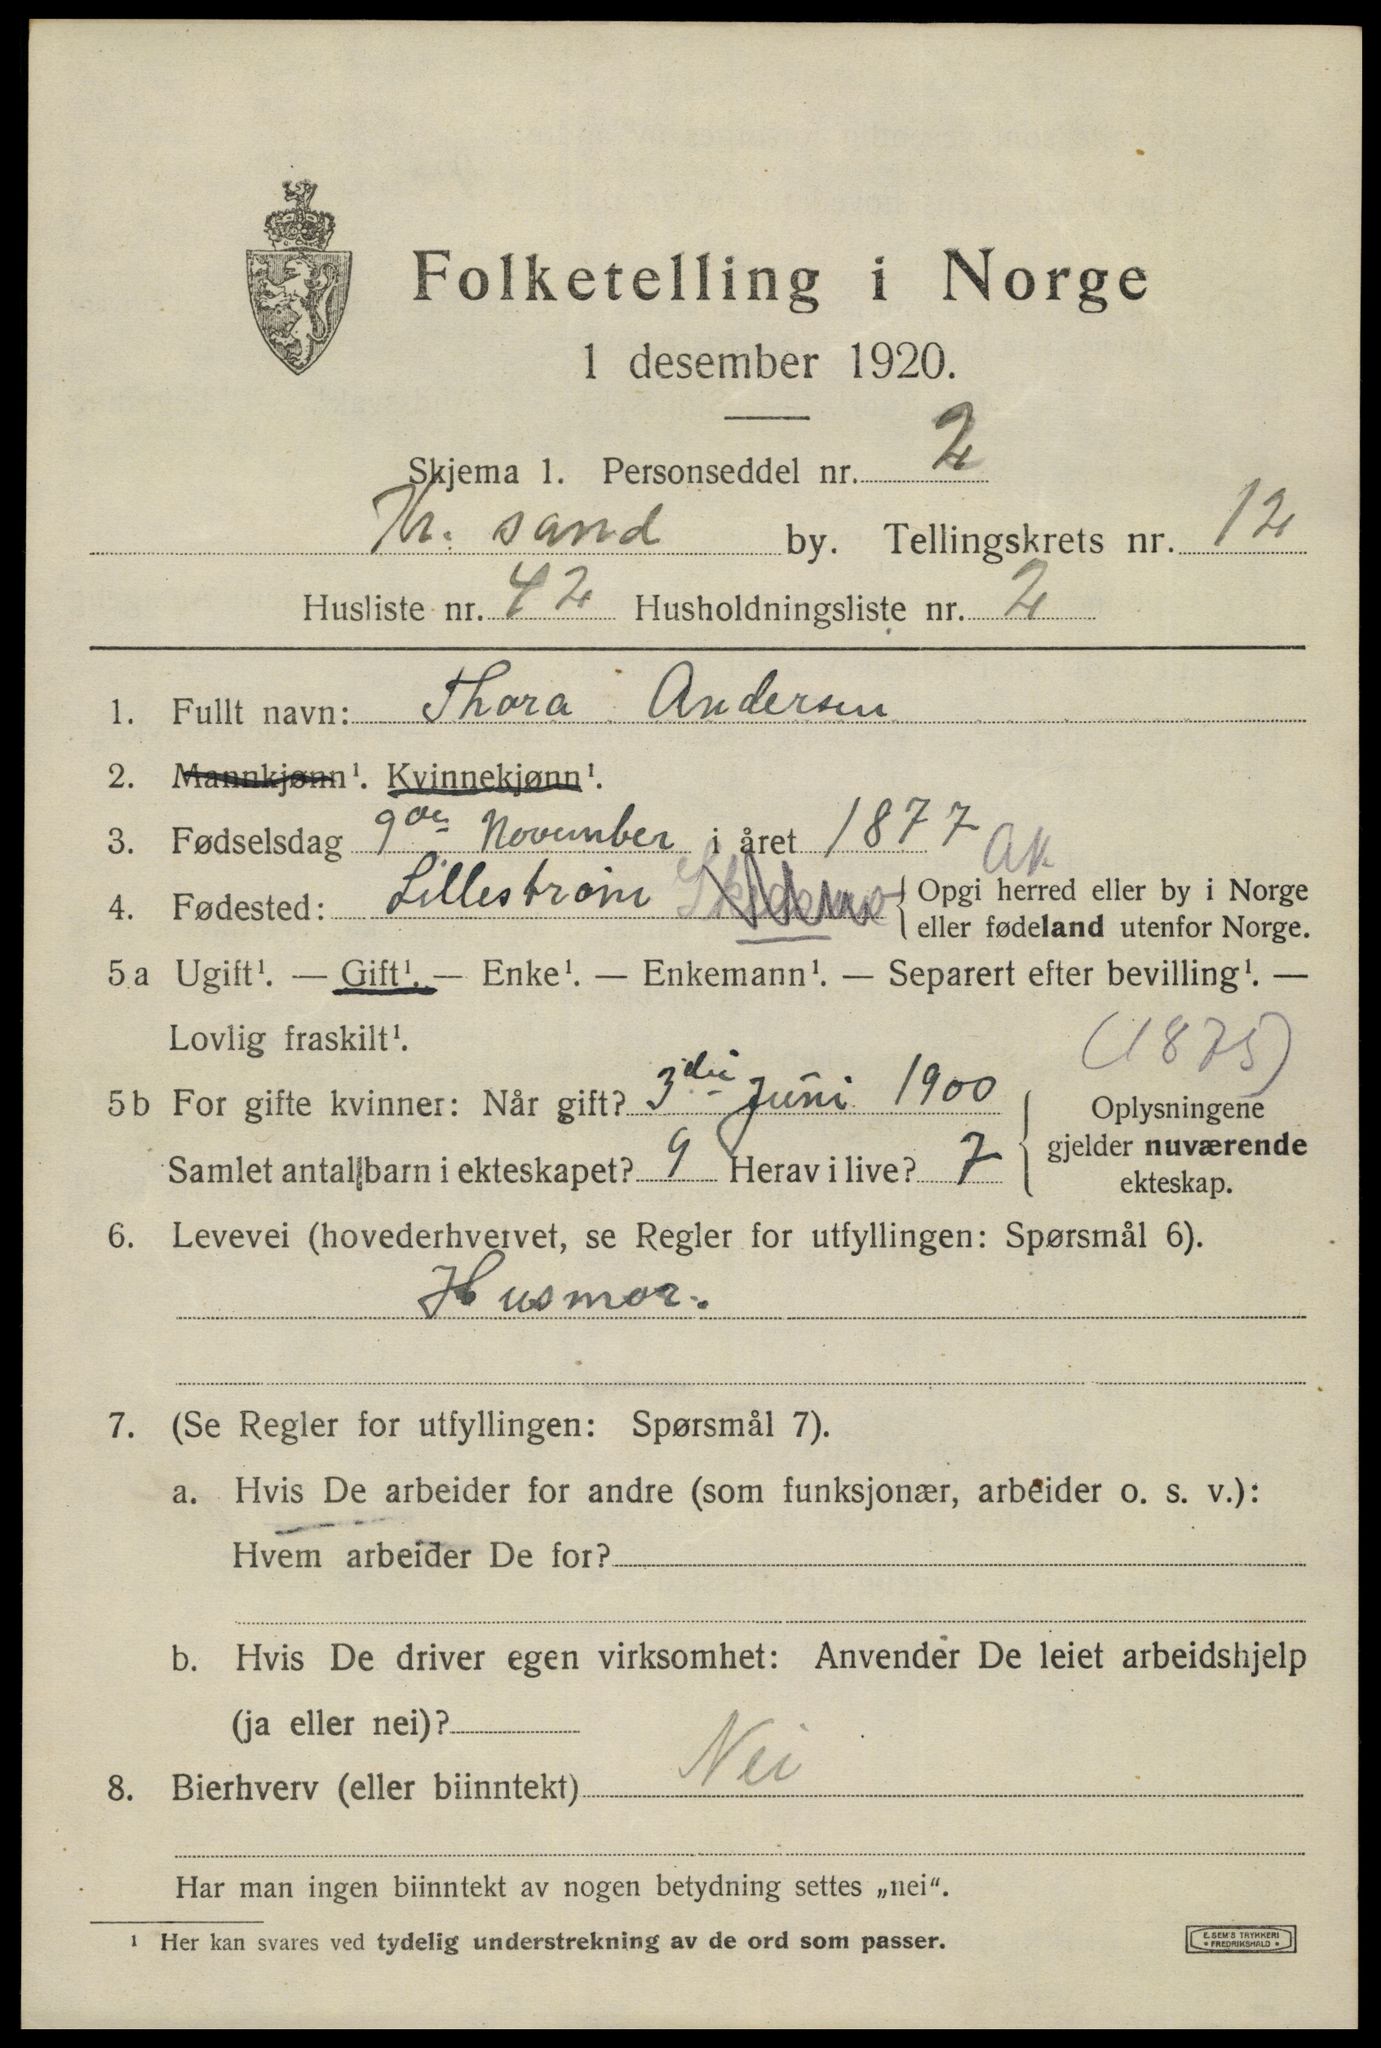 Folketelling i Norge
1 desember 1920.
Skjema 1. Personseddel nr. 2
Kr. sand by. Tellingskrets nr. 12
Husliste nr. 42 Husholdningsliste nr. 2
1. Fullt navn: Thora Andersen
2. Mannkjønn¹. Kvinnekjønn¹.
3. Fødselsdag 9de November i året 1877
Ak
4. Fødested: Lillestrøm { Opgi herred eller by i Norge
eller fødeland utenfor Norge.
5 a Ugift¹. — Gift¹. — Enke¹. — Enkemann¹. — Separert efter bevilling¹. —
Lovlig fraskilt¹.
(1875)
5 b For gifte kvinner: Når gift? 3die Juni 1900
Samlet antal barn i ekteskapet? 9 Herav i live? 7
{ Oplysningene
gjelder nuværende
ekteskap.
6. Levevei (hovederhvervet, se Regler for utfyllingen: Spørsmål 6).
Husmor.
7. (Se Regler for utfyllingen: Spørsmål 7).
a. Hvis De arbeider for andre (som funksjonær, arbeider o. s. v.):
Hvem arbeider De for?
b. Hvis De driver egen virksomhet: Anvender De leiet arbeidshjelp
(ja eller nei)?
8. Bierhverv (eller biinntekt) Nei
Har man ingen biinntekt av nogen betydning settes „nei“.
¹ Her kan svares ved tydelig understrekning av de ord som passer.
E. SEM'S TRYKKERI
• FREDRIKSHALD •